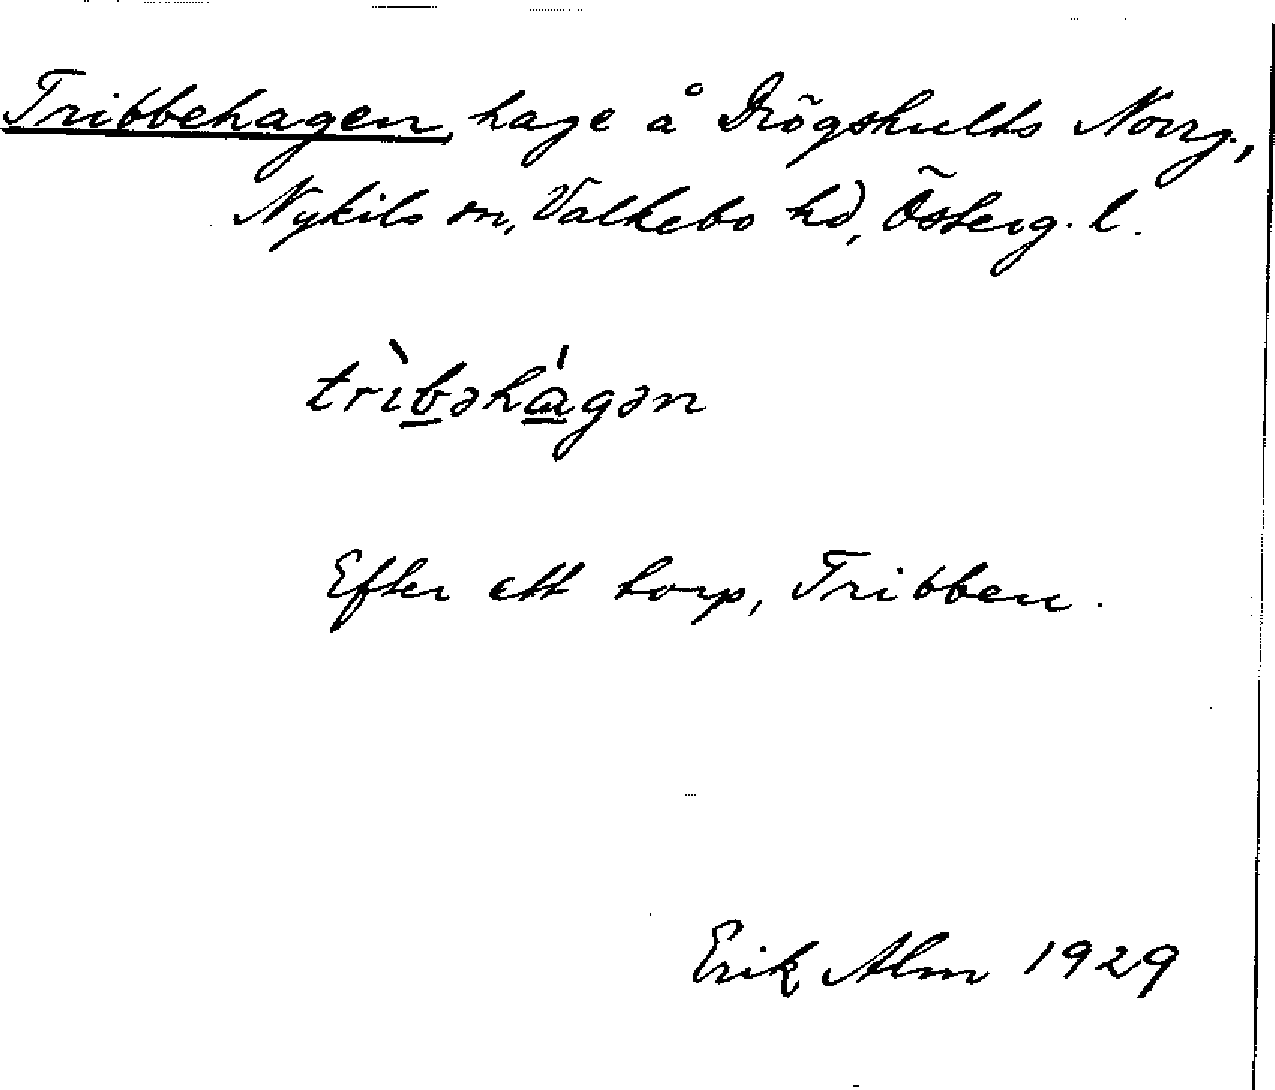 Tribbehagen, hage å Drögshults Norrg.,
Nykils sn, Valkebo hd, Österg. l.
trìbəhágən
Efter ett torp, Tribben.
Erik Alm 1929